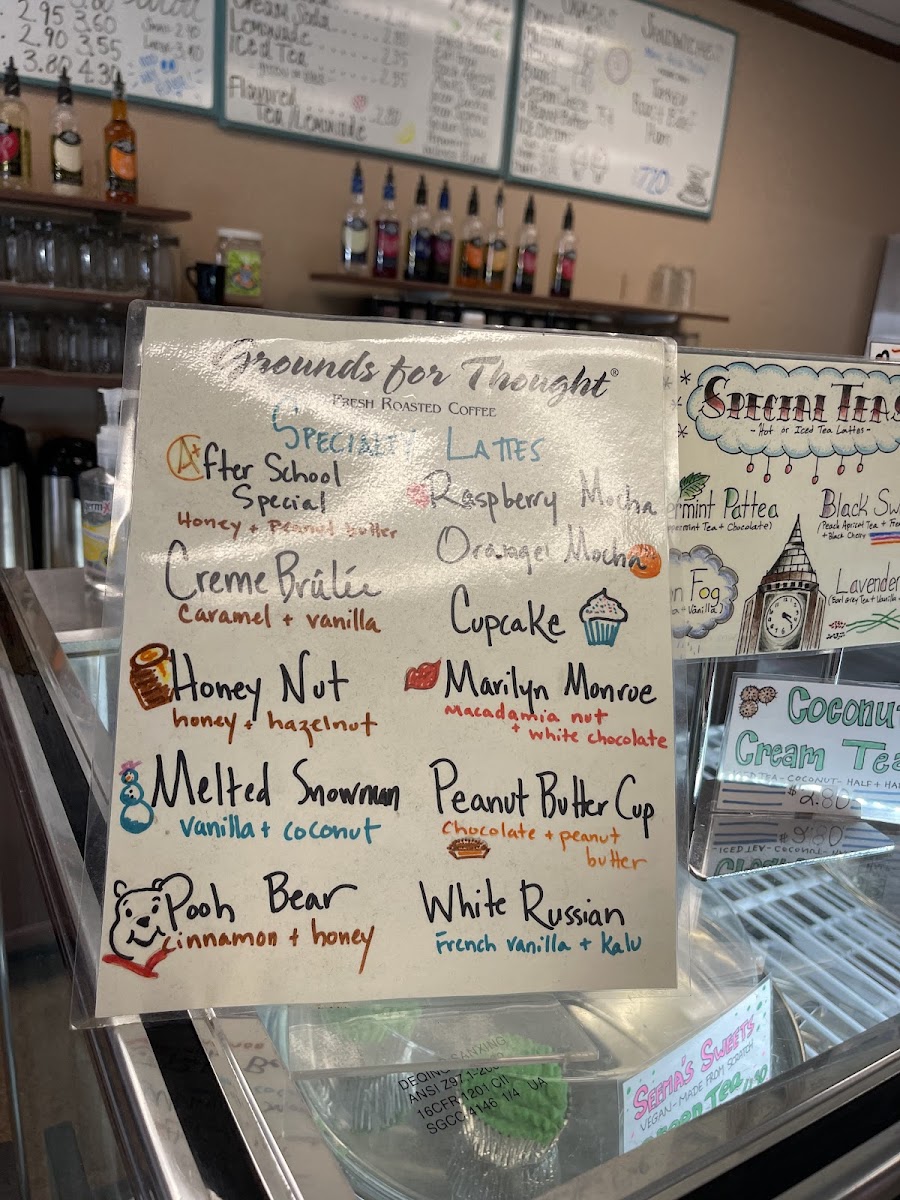 2.95
2.90 3.55
3.80 4.30
Cream Soda
Lemonade
Iced Tea
Flavored
Tea/Lemonade
2.80
Sandwiches
Turkey
Ham
Grounds for Thought®
Fresh Roasted Coffee
Specialty Lattes
A+fter School
Special
Honey + Peanut butter
Creme Brúlée
caramel + vanilla
Honey Nut
honey + hazelnut
Melted Snowman
vanilla + coconut
Pooh Bear
cinnamon + honey
Raspberry Mocha
Orange Mocha
Cupcake
Marilyn Monroe
Macadamia nut
+ white chocolate
Peanut Butter Cup
Chocolate + peanut
butter
White Russian
French vanilla + Kalu
Special Teas
- Hot or Iced Tea Lattes -
ermint Pattea
ermint Tea + Chocolate)
Black Sw
(Peach Apricot Tea + Fre
+ Black Cherry
n Fog
a + Vanilla)
Lavender
(Earl Grey Tea + Vanilla
Coconu
Cream Tea
ICED TEA - COCONUT - HALF + HA
$2.80
DEQING SANXING
ANSI Z97.1-20
16CFR 1201 CII
SGCC 4146 1/4 UA
Seema's Sweets
VEGAN - MADE FROM SCRATCH